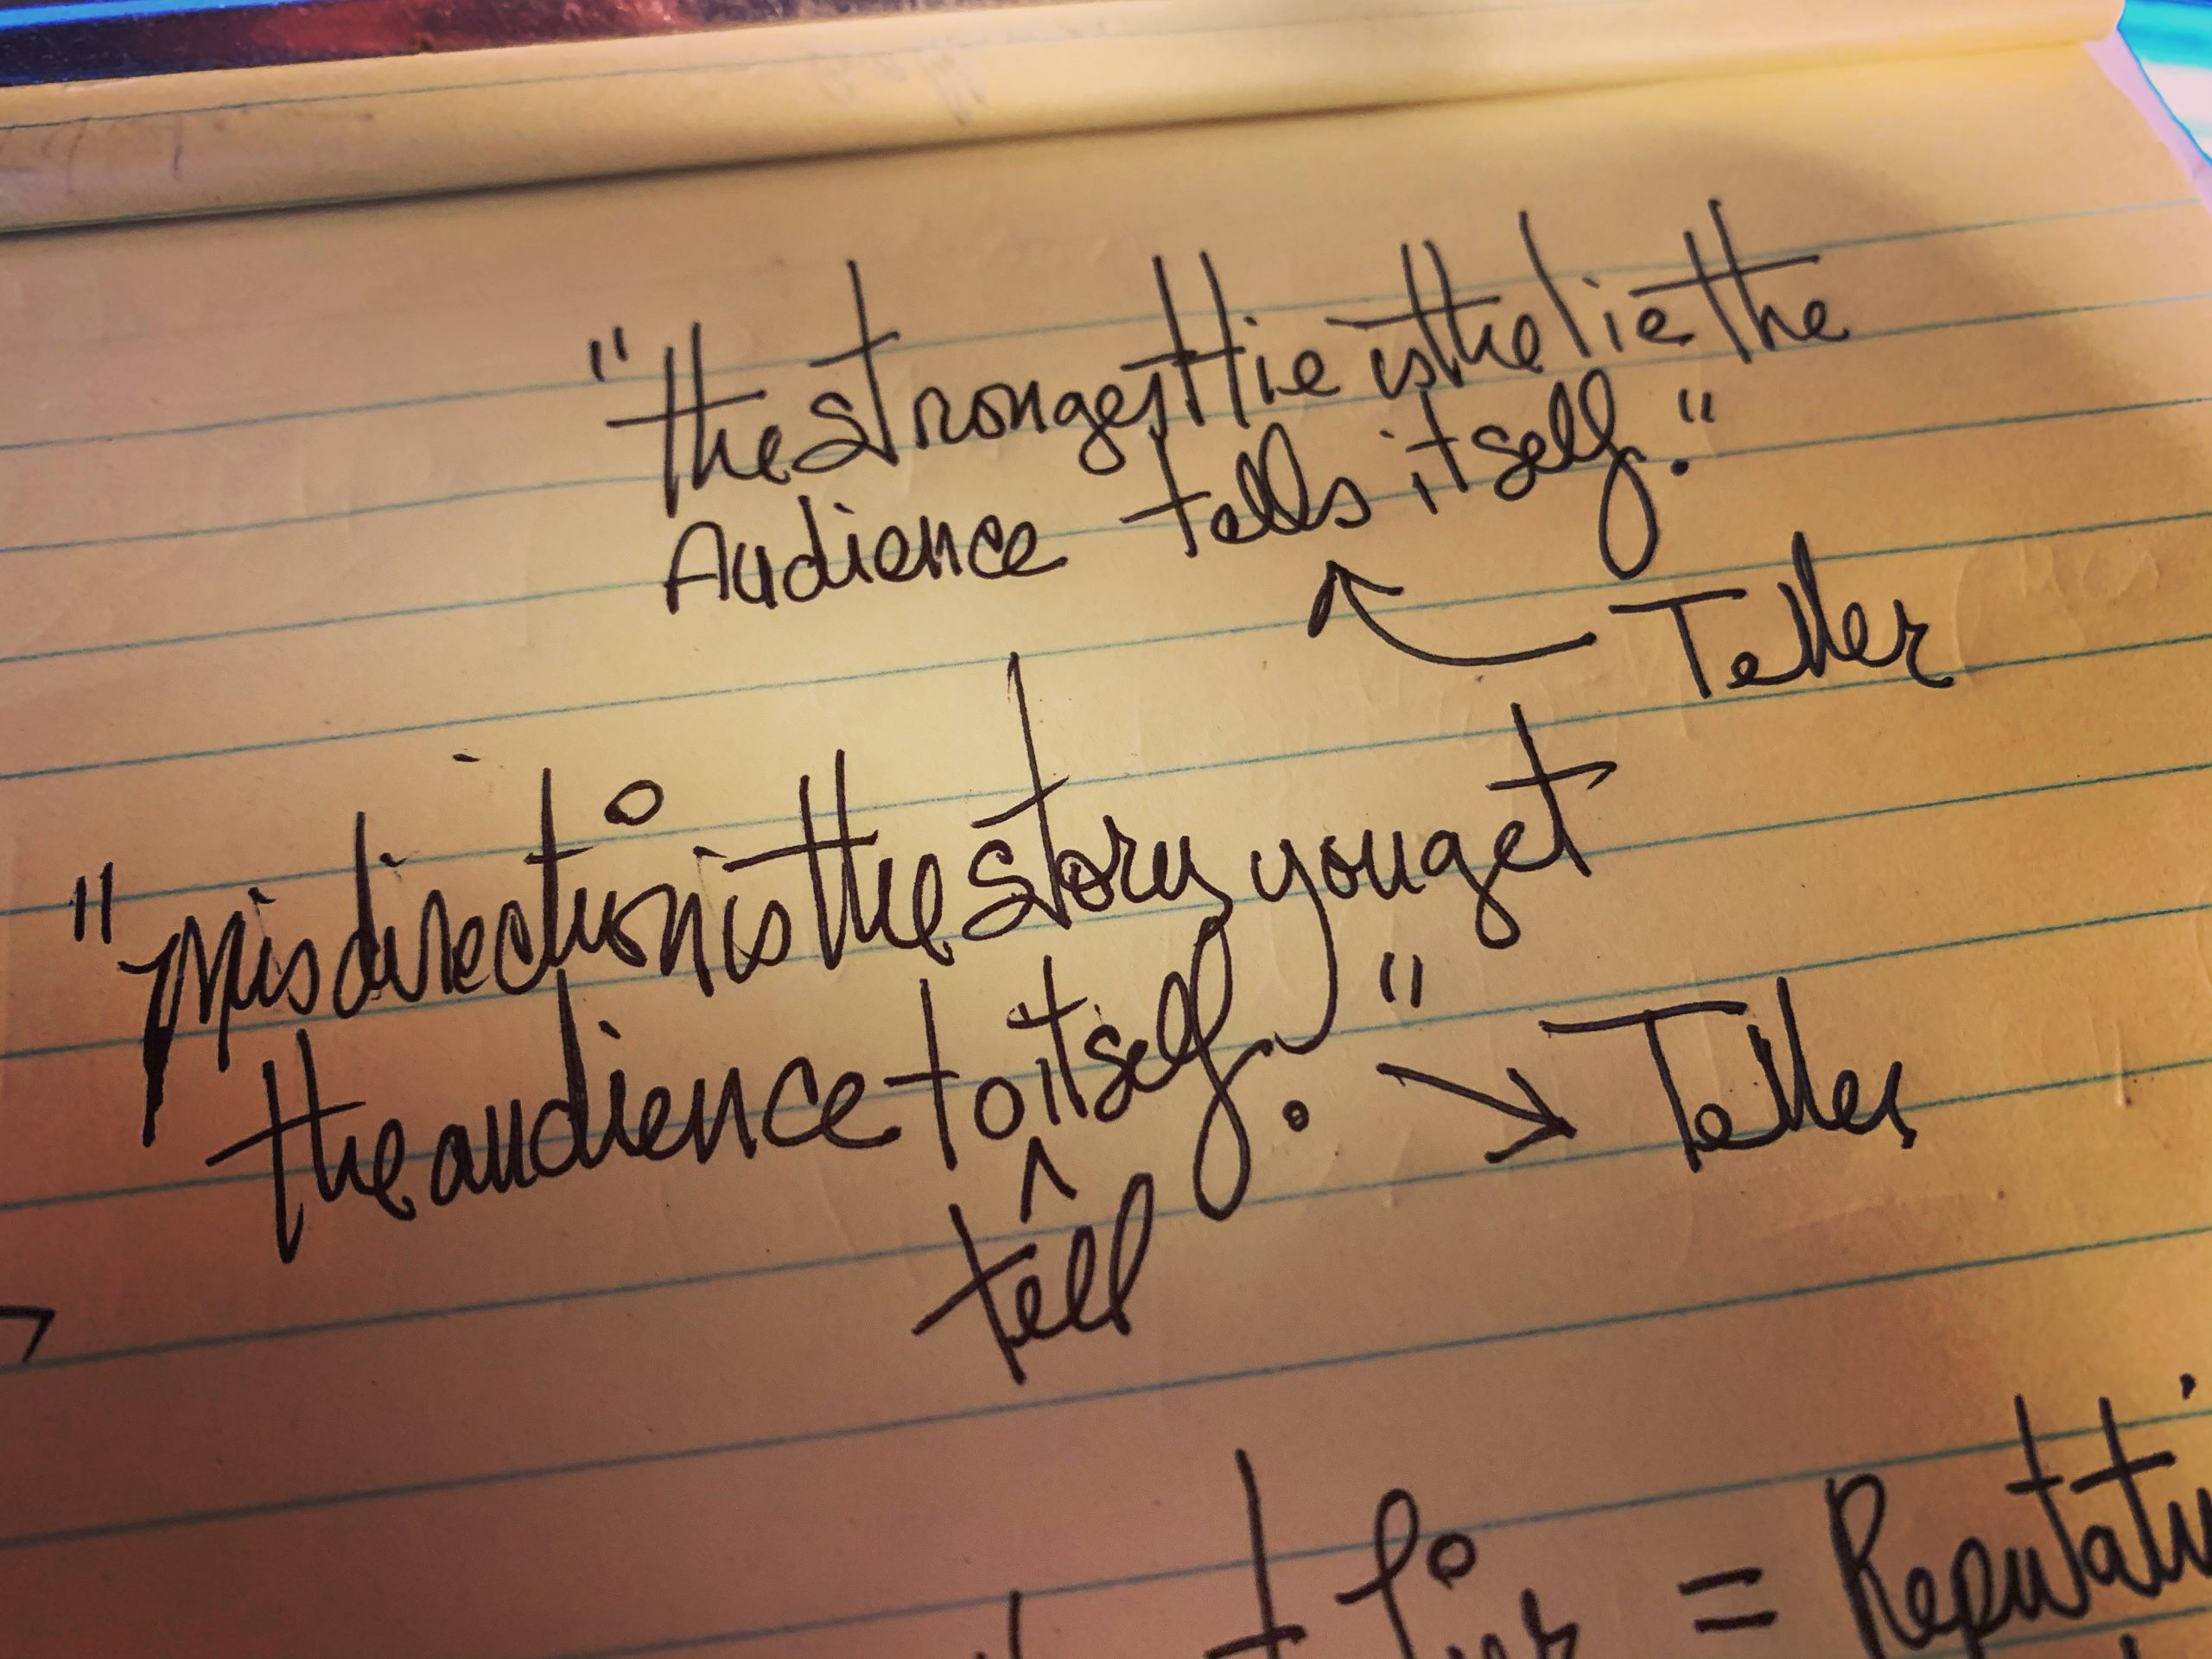 "the strongest lie is the lie the
Audience tells itself."
Teller
"Misdirection is the story you get
the audience to itself."
Teller
tell
= Reputati